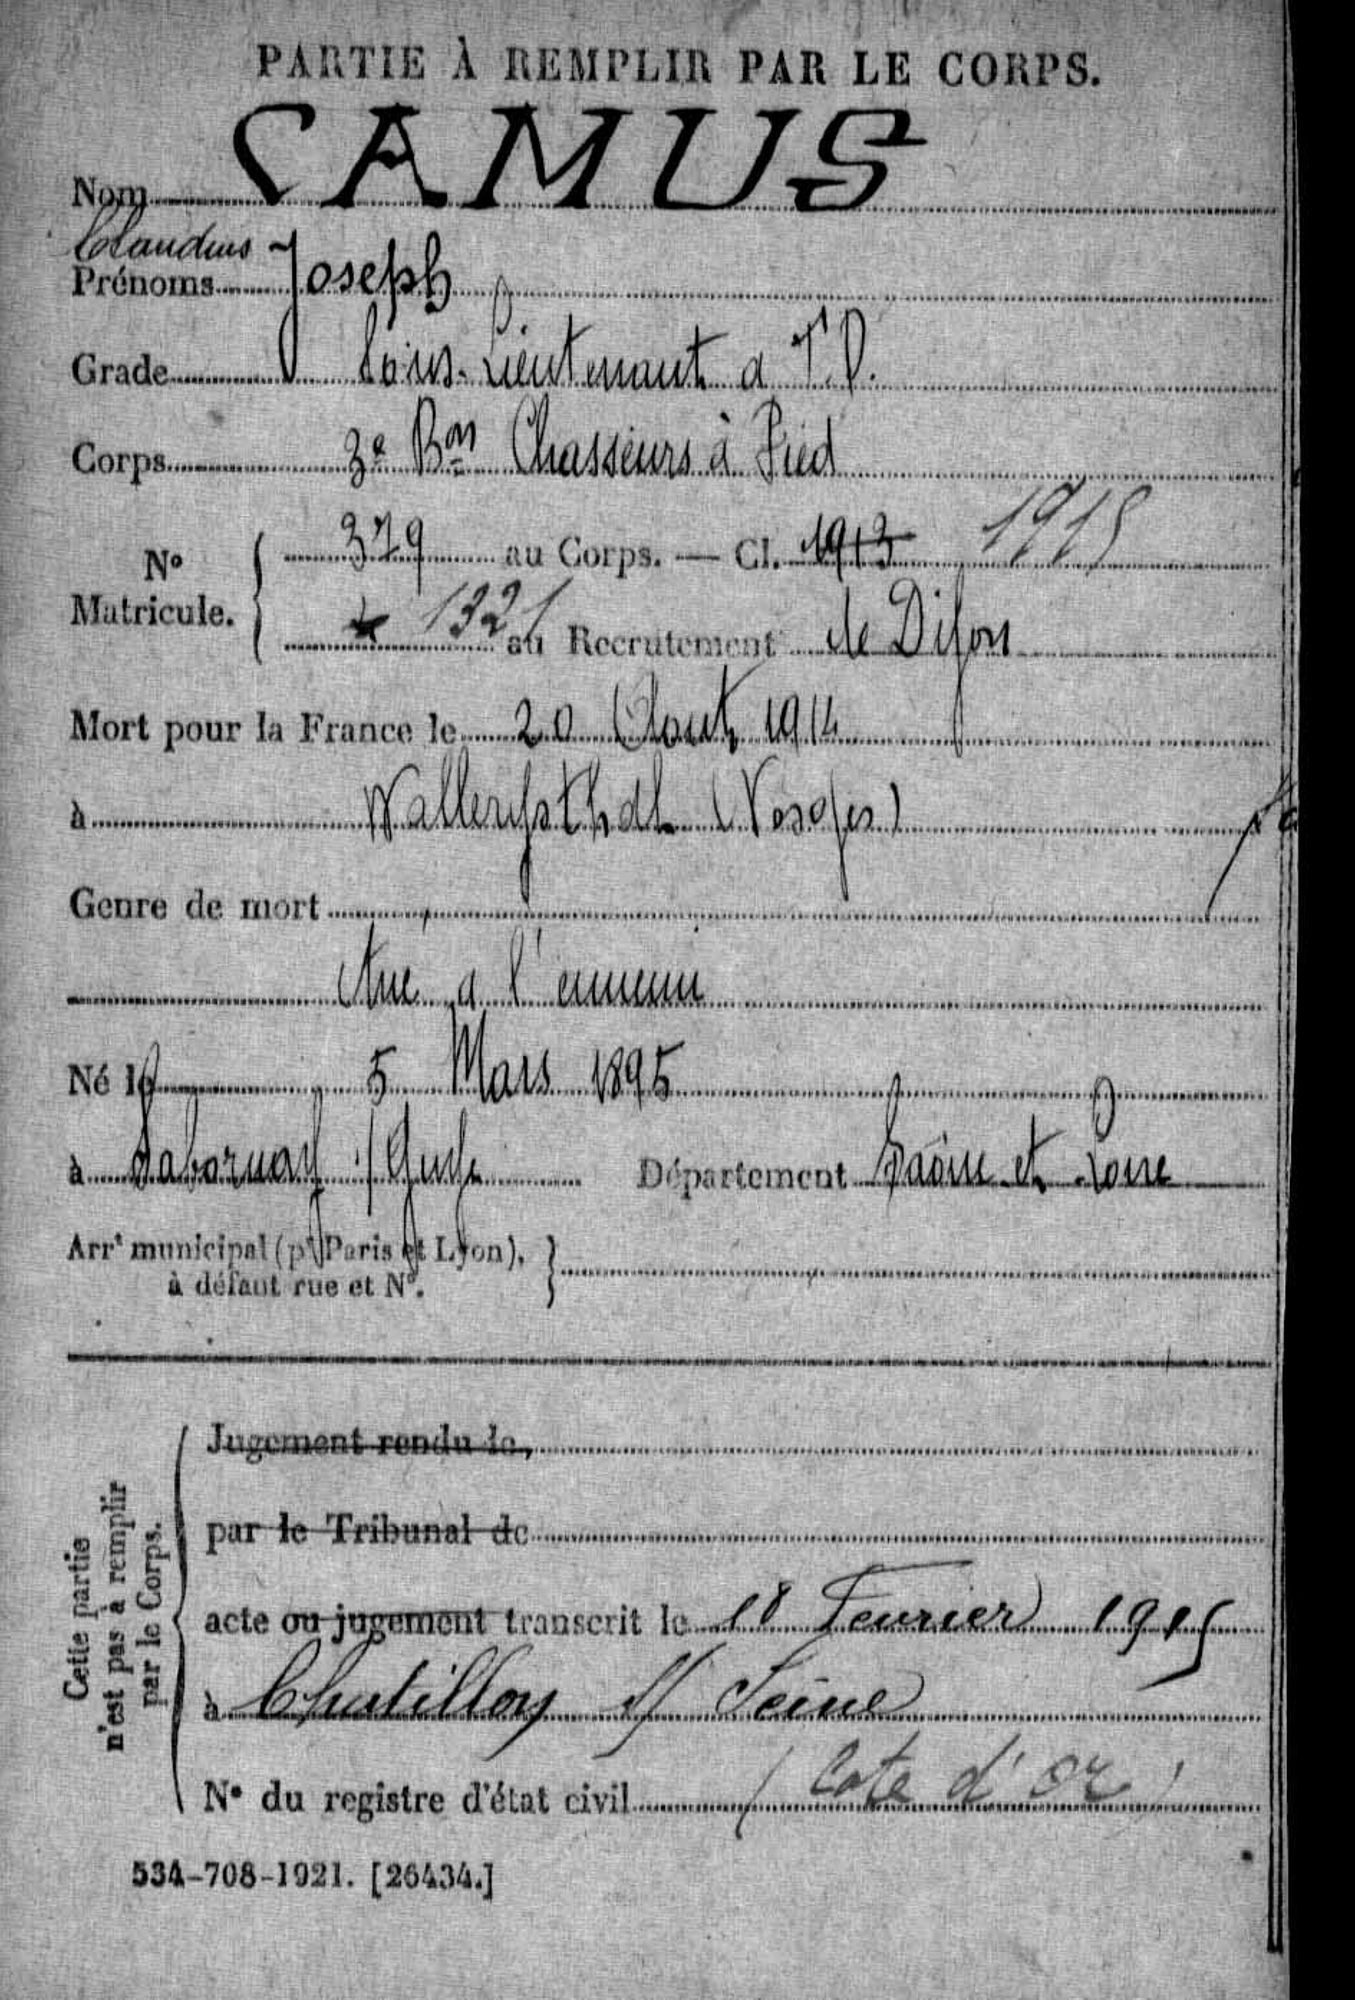 PARTIE À REMPLIR PAR LE CORPS.
Nom CAMUS
Claudius
Prénoms Joseph
Grade Sous-Lieutenant a T.D.
Corps 3e Bon Chasseurs à Pied
No Matricule.
379 au Corps. — Cl. 1913 1915
1321 au Recrutement de Dijon
Mort pour la France le 20 Aout 1914
à (Vosges)
Genre de mort
tué a l'ennemi
Né le 5 Mars 1895
à Département Saône et Loire
Arrt municipal (pr Paris et Lyon),
à défaut rue et No.
Cette partie
n'est pas à remplir
par le Corps.
Jugement rendu le,
par le Tribunal de
acte ou jugement transcrit le 18 Fevrier 1915
à Chatillon s/ Seine
No du registre d'état civil (Cote d'or)
534-708-1921. [26434.]